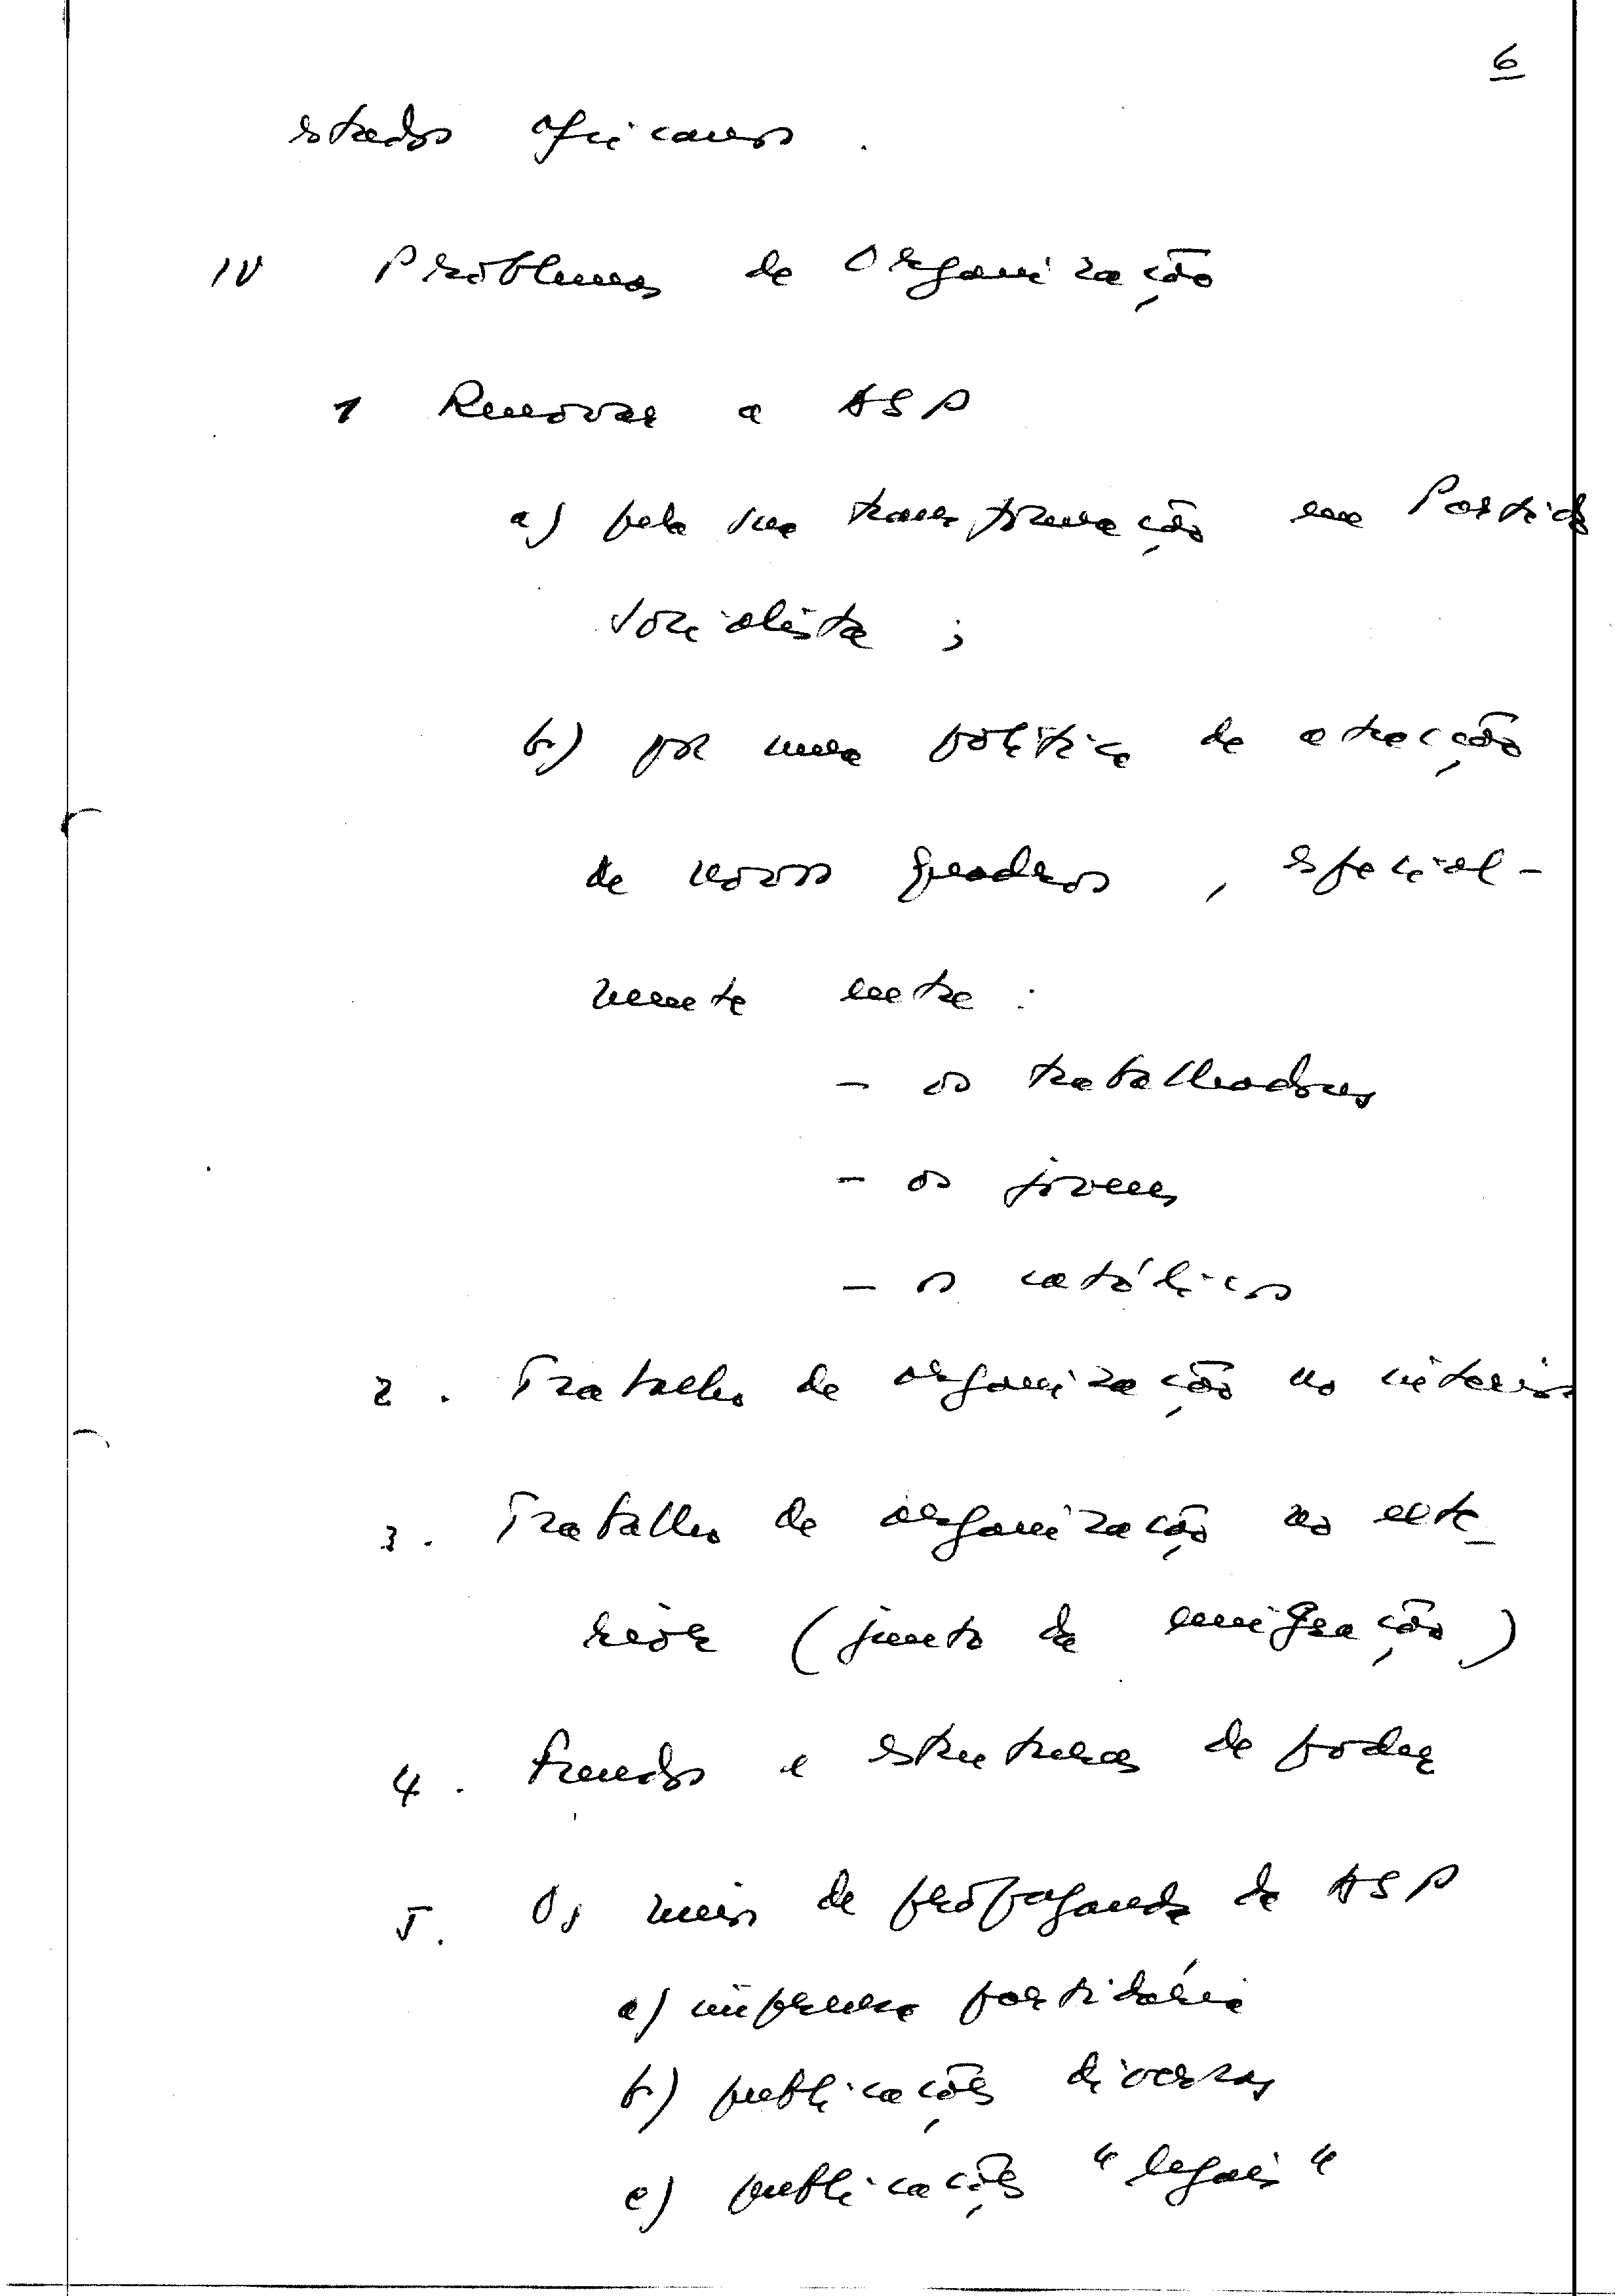 6
estados africanos.
IV Problemas de Organização
1 Renovar a ASP
a) pela sua transformação em Partido
Socialista;
b) por uma política de atracção
de novos quadros, especial-
mente entre:
- os trabalhadores
- os jovens
- os católicos
2. Trabalho de organização no interior
3. Trabalho de organização no exte-
rior (junto da emigração)
4. Fundos e estruturas de poder
5. Os meios de propaganda da ASP
a) imprensa partidária
b) publicações diversas
c) publicações "legais"